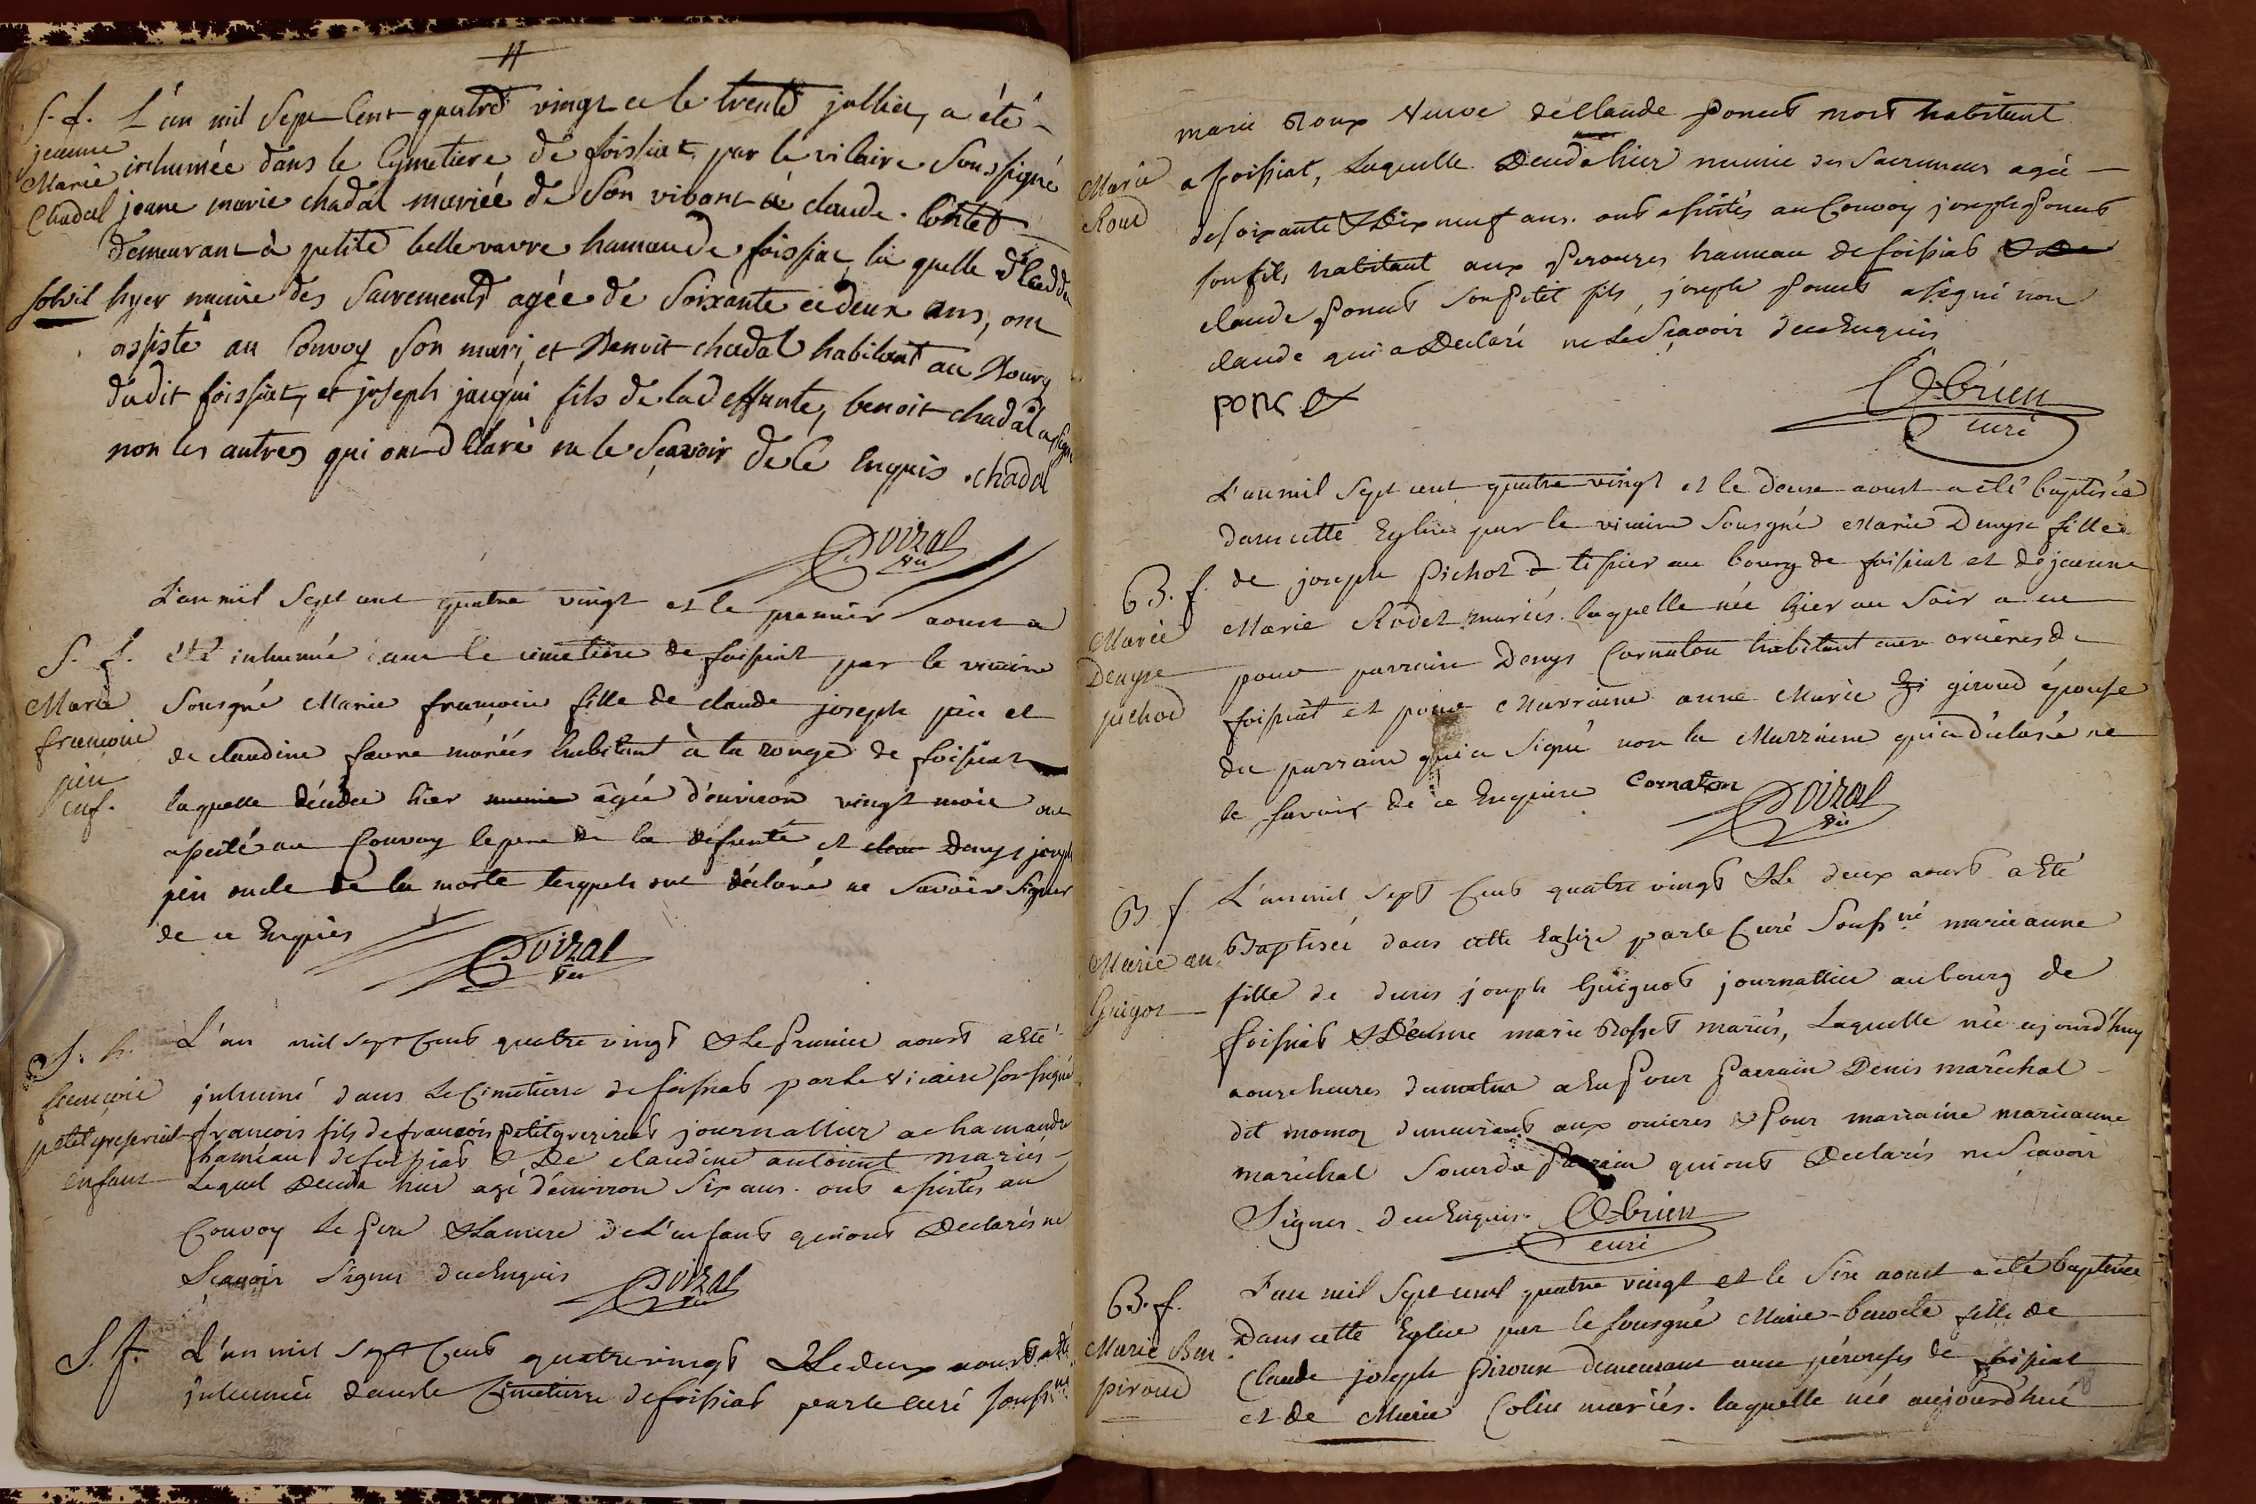 S. f. L'an mil Sept Cent quatre vingt et le trente juillet, a été
jeanne
Marie
Chadal
inhumée dans le Cymetiere de foissiat par le vicaire Soussigné
jeane marie chadal mariée de Son vivant à claude
demeurant à petite bellevavre hameau de foissiat la quelle
solvit hyer munie des Sacrements agée de Soixante et deux ans, ont
assisté au Convoy Son mari et Benoit chadal habitant au Bourg
dudit foissiat, et joseph jacqui fils de la deffunte, benoit chadal a signé
non les autres qui ont déclaré ne le Sçavoir de ce Enquis . chadal
Poizal
Vic
L'an mil Sept cent quatre vingt et le premier aoust a
S. f.
Marie
françoise
pin
enf.
été inhumée dans le cimetière de foissiat par le vicaire
Sousigné Marie françoise fille de claude joseph pin et
de claudine favre mariés habitant à la ronge de foissiat
laquelle décédée hier munie âgée d'environ vingt mois ont
assisté au Convoy le pere de la defunte et Denys joseph
pin oncle de la morte lesquels ont déclaré ne Savoir Signer
de ce Enquis
Poizal
Vic
L'an mil sept Cent quatre vingt & Le Premier aoust a Eté
S. h.
françois
enfant
inhumé dans Le Cimetierre de foissiat par Le Vicaire sousigné
françois fils de françois petit journallier a chamandre
hameau de foissiat & De claudine antoinet mariés
Lequel Deceda hier agé d'environ Six ans. ont assistés au
Convoy Le Pere & La mere de L'enfant qui ont Declarés ne
Scavoir Signer de ce Enquis
Poizal
Vic
S. f. L'an mil sept Cent quatre vingt & Le deux aoust a été
inhumée dans le Cimetierre de foissiat par le curé souss.né
marie Roux Veuve de Claude Poncet mort habitant
Marie
Roux
a foissiat, Laquelle Deceda hier munie des Sacremens agée
de soixante & Dix neuf ans. ont assistés au Convoy joseph Poncet
son fils habitant aux Perouzes hameau de foissiat
claude Poncet son Petit fils, joseph Poncet a signé non
claude qui a Declaré ne Le Sçavoir de ce Enquis
ponset
Obrien
curé
L'an mil Sept cent quatre vingt et le douze aoust a été baptisée
dans cette Eglise par le vicaire Sousigné Marie Denyse fille
B. f.
Marie
Denyse
pichod
de joseph Pichod tissier au bourg de foissiat et de jeanne
Marie Rodet mariés. laquelle née hier au Soir a eu
pour parrain Denys Cornaton habitant aux orcières de
foissiat et pour Marraine anne Marie giroud épouse
du parrain qui a Signé non la Marraine qui a déclaré ne
le savoir de ce Enquise Cornaton
Poizal
Vic
L'an mil sept Cent quatre vingt & Le deux aoust a Eté
B. f.
Marie an.
Guigot
Baptisée dans cette Eglize par le Curé Souss.né marie anne
fille de denis joseph Guignot journallier au bourg de
foissiat & De anne marie Rosset mariés, Laquelle née ajourd'huy
a onze heures du matin a Eu Pour Parrain Denis maréchal
dit momoz demeurant aux orcieres & Pour marraine marie anne
maréchal Soeur du Parrain qui ont Declarés ne Sçavoir
Signer de ce Enquis.
Obrien
curé
L'an mil Sept cent quatre vingt et le Six aoust a été baptisée
B. f.
Marie Ben
piroud
Dans cette Eglise par le sousigné Marie-benoite fille de
Claude joseph Piroux demeurant aux pérouses de foissiat
et de Marie Colin mariés. laquelle née aujourd'hui